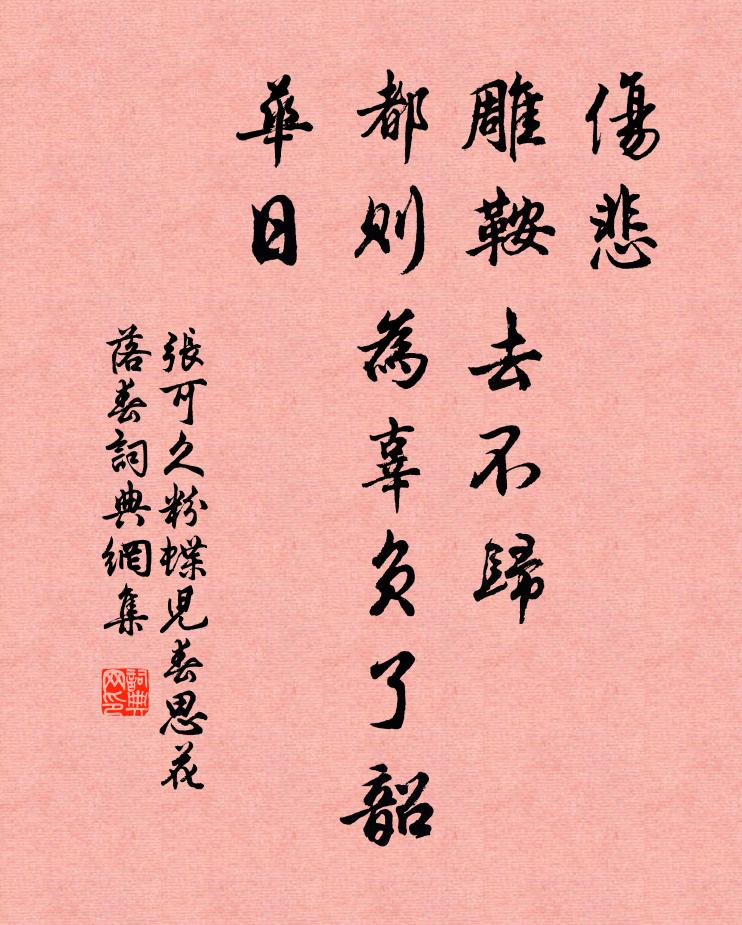 傷悲
雕鞍去不歸
都則為辜負了韶
華日
張可久粉蝶児春思花
落春詞典網集
詞典
网印